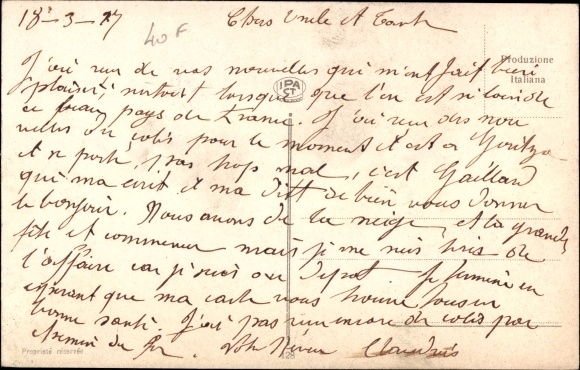 18-3-17
Chers Oncle et Tante
40 F
Produzione
Italiana
IPA
CT
J'ai reçu de vos nouvelles qui m'ont fait bien
plaisir, surtout lorsque que l'on est si loin de
ce beau pays de France. J'ai reçu des nou
velles de pour le moment il est a Goritza
et se porte pas trop mal, c'est Gaillard
qui m'a écrit il m'a dit de bien vous donner
le bonjour. Nous avons de la neige, et la grande
fête et commencer mais je me suis tiré de
l'affaire car je suis au Depot. Je termine en
espérant que ma carte vous trouve tous en
bonne santé. J'ai pas reçu encore de colis par
chemin de fer. Votre Neveu Claudius
Proprieté réservée
128